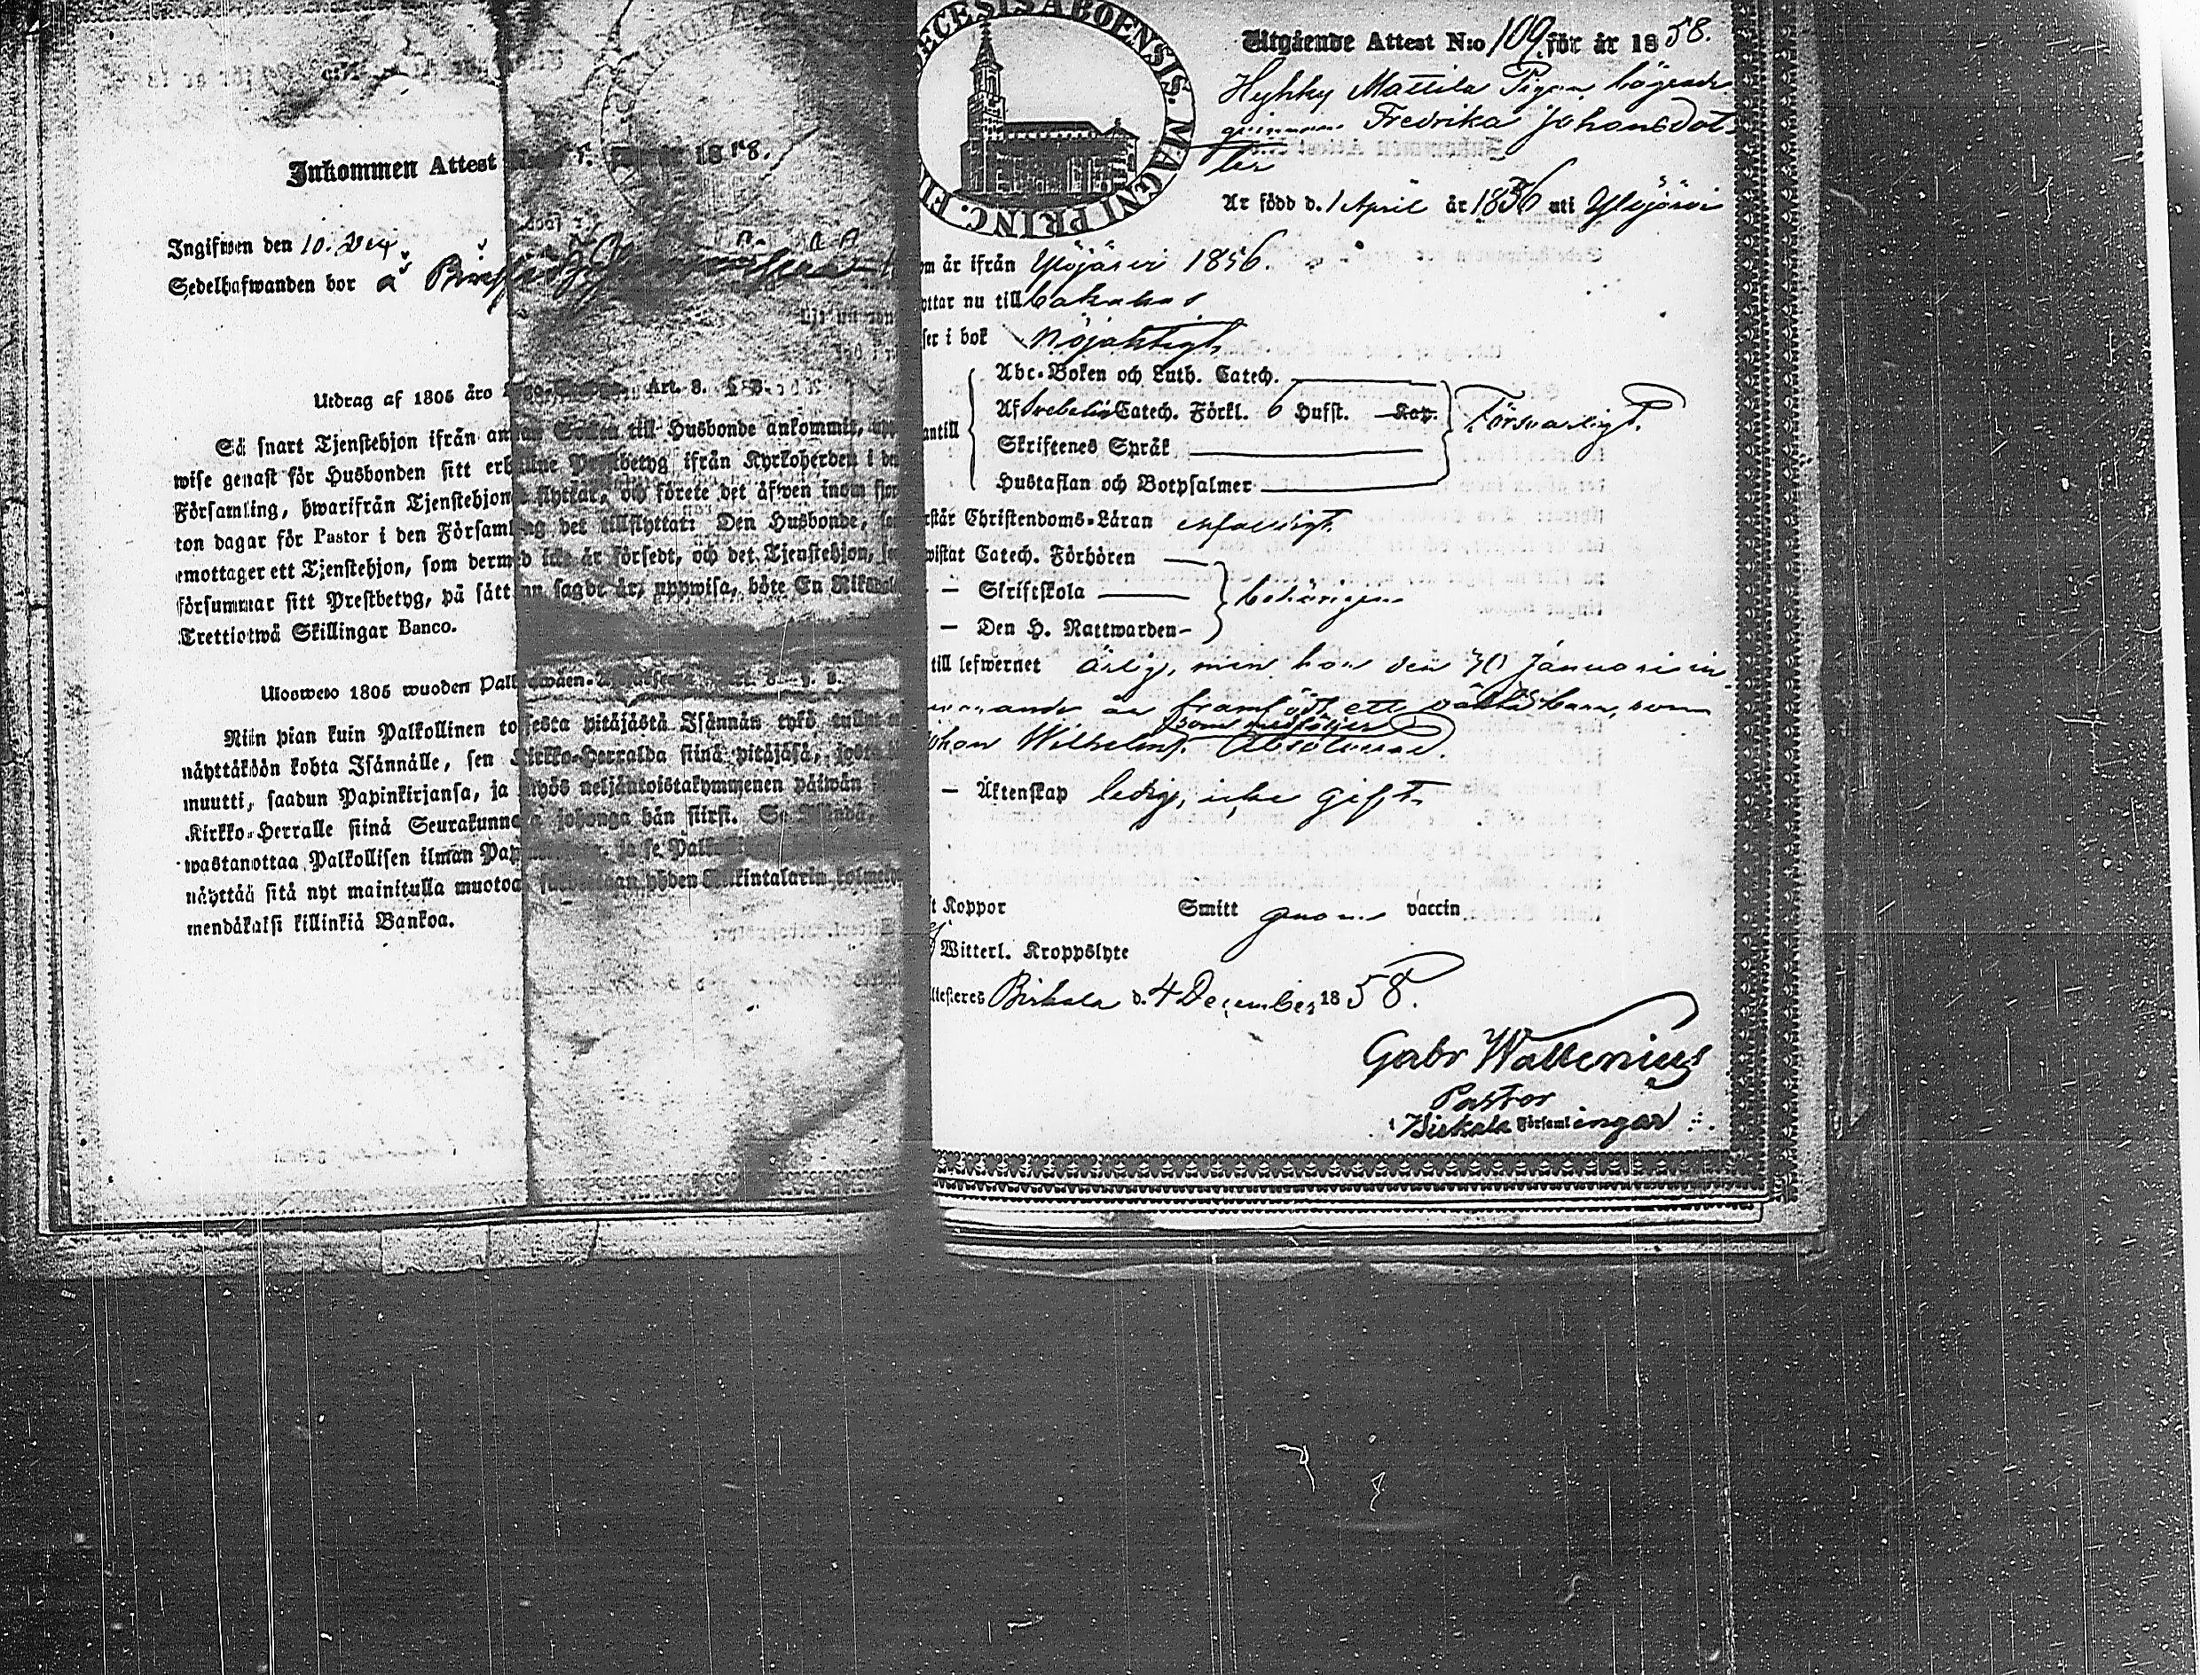 Inkommen Attest 1858.
Ingifwen den 10. Dec.
Sedelhafwanden bor å
Utdrag af 1805 års Art. 8. § 3.
Så snart Tjenstehjon ifrån annan Socken till Husbonde ankommit, upp
wise genast för Husbonden sitt erhållne Prestbetyg ifrån Kyrkoherden i den
Församling, hwarifrån Tjenstehjonet flyttat, och förete det äfwen inom fjor
ton dagar för Pastor i den Församling det tillflyttat: Den Husbonde, som
emottager ett Tjenstehjon, som dermed icke är försedt, och det Tjenstehjon, som
försummar sitt Prestbetyg, på sätt nu sagdt är, uppwisa, böte En Riksdaler
Trettiotwå Skillingar Banco.
Uloswedo 1805 wuoden
Niin pian kuin Palkollinen toisesta pitäjästä Isännän tykö tullut
näyttäköön kohta Isännälle, sen Kirkko-Herralda siinä pitäjäsä, josta
muutti, saadun Papinkirjansa, ja myös neljäntoistakymmenen päiwän
Kirkko-Herralle siinä Seurakunnasa johonga hän siirsi. Se Isändä,
wastanottaa Palkollisen ilman ja se
näyttää sitä nyt mainitulla muotoa yhden Rikintalarin kolmekym
mendäkaksi killinkiä Bankoa.
ECESIS ABOENSIS. MAGNI PRINC. FI
Utgående Attest N:o 109 för år 1858.
Hyhky Mattila Pigan
Fredrika Johansdot
ter
Är född d. 1 April år 1836 uti Ylöjärvi
om är ifrån Ylöjärvi 1856.
yttar nu till bakakas
ser i bok Nöjaktigt
Abc-Boken och Luth. Catech.
Af Svebelii Catech. Förkl. 6 Hufst. Kap.
antill Försvarligt
Skriftenes Språk
Hustaflan och Botpsalmer
rstår Christendoms-Läran enfaldigt.
wistat Catech. Förhören
— Skriftskola behörigen
— Den H. Nattwarden
till lefwernet ärlig, men har den 30 Januari in
newarande år framfödt ett oäkta barn, som
som medföljer
Johan Wilhelm. Absolverad.
— Äktenskap ledig, icke gift.
t Koppor Smitt genom vaccin
Witterl. Kroppslyte
ttesteres Birkala d. 4 December 1858.
Gabr Wallenius
Pastor
i Birkala Församlingar